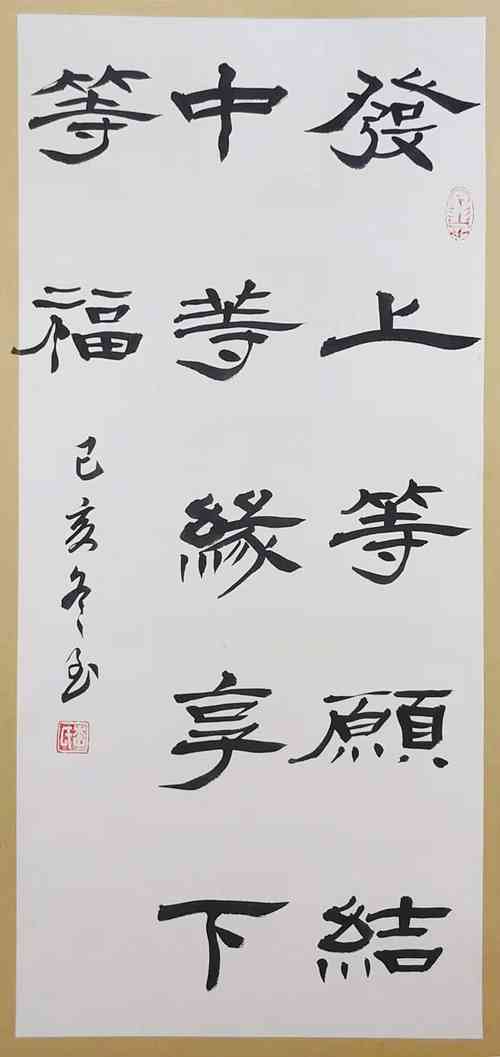 發上等願結
中等緣享下
等福
己亥冬至